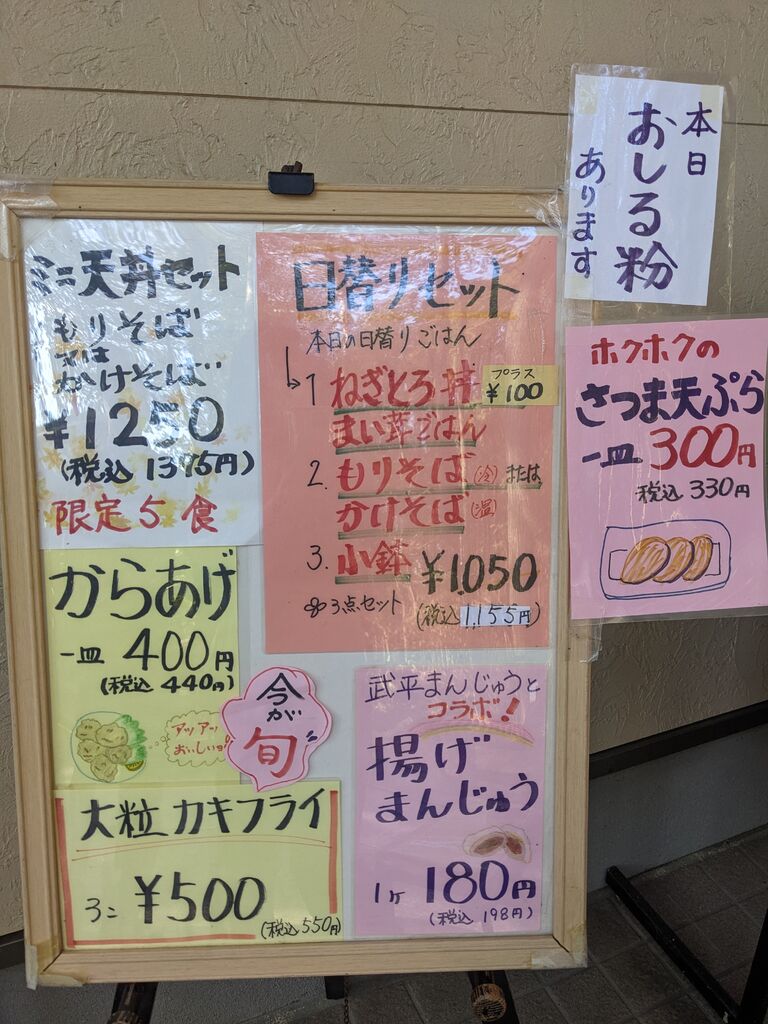 ミニ天丼セット
もりそば
又は
かけそば
¥1250
(税込 1375円)
限定5食
日替りセット
本日の日替りごはん
1 ねぎとろ丼 プラス ¥100
まい茸ごはん
2. もりそば(冷)または
かけそば(温)
3. 小鉢 ¥1,050
3点セット (税込 1,155円)
からあげ
一皿 400円
(税込 440円)
アツアツ
おいしいっ!
今が
旬
大粒 カキフライ
3コ ¥500
(税込 550円)
武平まんじゅうと
コラボ!
揚げ
まんじゅう
1ヶ 180円
(税込 198円)
本日
おしる粉
あります
ホクホクの
さつま天ぷら
一皿 300円
税込 330円